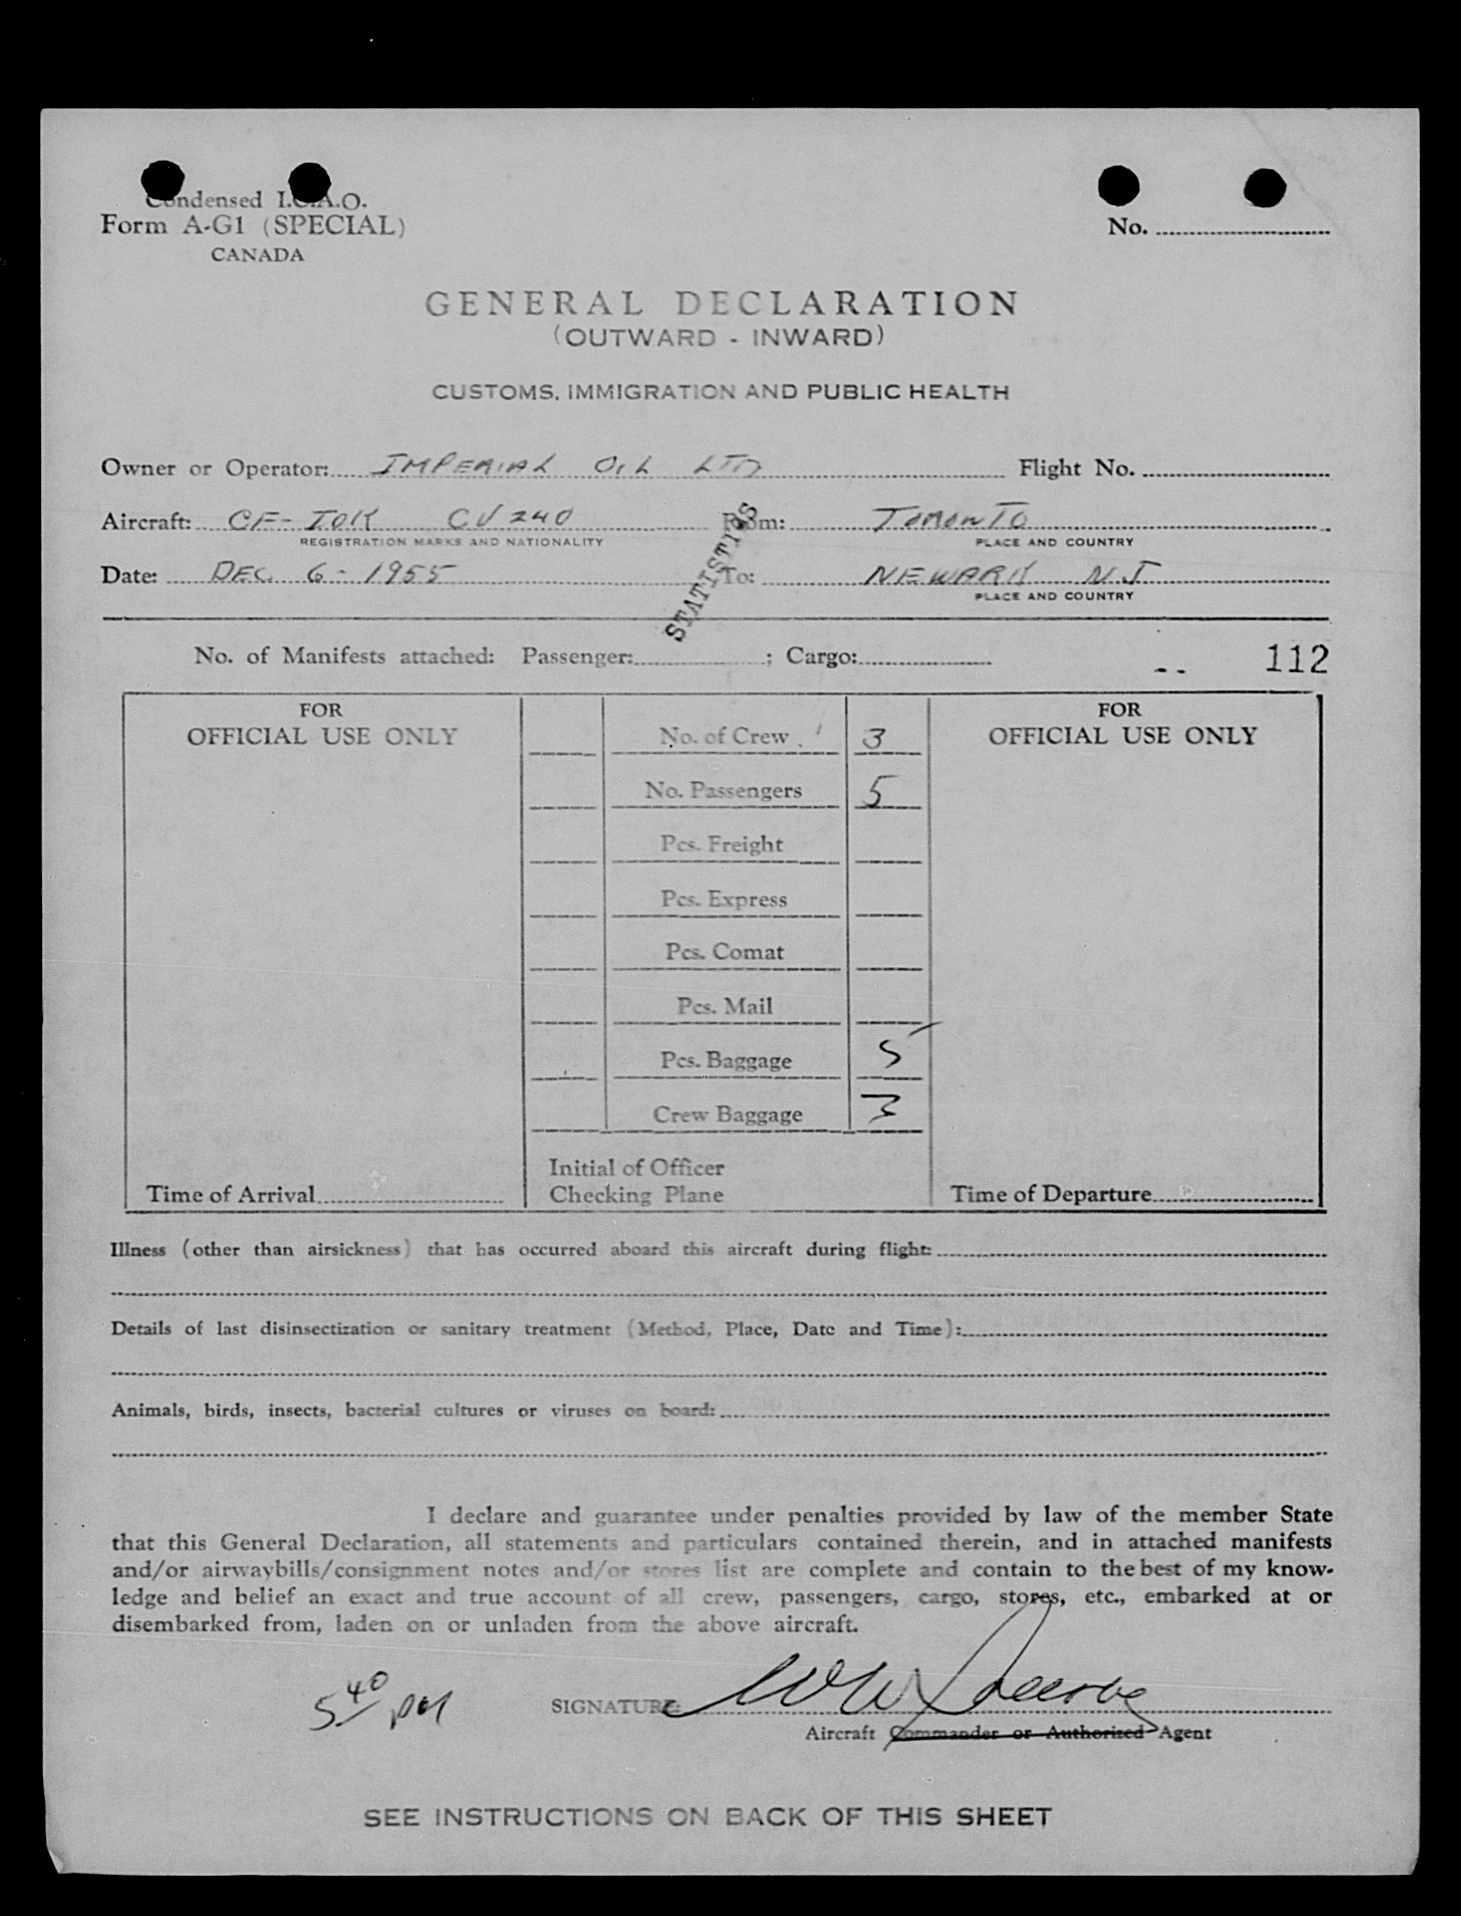 Condensed I.C.A.O.
Form A-G1 (SPECIAL)
CANADA
No.
GENERAL DECLARATION
(OUTWARD - INWARD)
CUSTOMS, IMMIGRATION AND PUBLIC HEALTH
Owner or Operator: IMPERIAL OIL LTD Flight No.
Aircraft: CF-IOK CV240 From: TORONTO
REGISTRATION MARKS AND NATIONALITY PLACE AND COUNTRY
Date: DEC 6 - 1955 To: NEWARK N J
PLACE AND COUNTRY
STATISTICS
No. of Manifests attached: Passenger: ; Cargo: -- 112
FOR
OFFICIAL USE ONLY
No. of Crew 3
No. Passengers 5
Pcs. Freight
Pcs. Express
Pcs. Comat
Pcs. Mail
Pcs. Baggage 5
Crew Baggage 3
FOR
OFFICIAL USE ONLY
Time of Arrival
Initial of Officer
Checking Plane
Time of Departure
Illness (other than airsickness) that has occurred aboard this aircraft during flight:
Details of last disinsectization or sanitary treatment (Method, Place, Date and Time):
Animals, birds, insects, bacterial cultures or viruses on board:
I declare and guarantee under penalties provided by law of the member State
that this General Declaration, all statements and particulars contained therein, and in attached manifests
and/or airwaybills/consignment notes and/or stores list are complete and contain to the best of my know-
ledge and belief an exact and true account of all crew, passengers, cargo, stores, etc., embarked at or
disembarked from, laden on or unladen from the above aircraft.
5 40 PM SIGNATURE:
Aircraft Commander or Authorized Agent
SEE INSTRUCTIONS ON BACK OF THIS SHEET